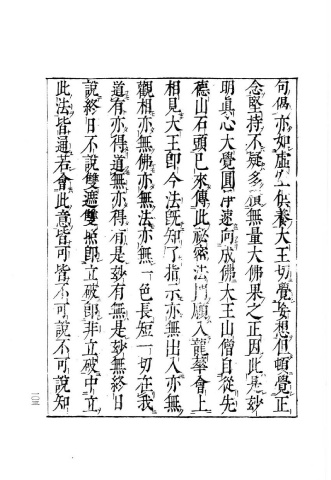 句偈亦如虛空供養大王切覺妄想但頓覺正
念堅持不疑多須無量大佛果之正因此是妙
明真心大覺圓淨速向成佛大王山僧自從先
德山石頭已來傳此祕密法門願入龍華會上
相見大王即今法既知了指示亦無出入亦無
觀相亦無佛亦無法亦無一色長短一切在我
道有亦得道無亦得有是妙有無是妙無終日
說終日不說雙遮雙照即立破即非立破中立
此法皆通若會此意皆可皆不可說不可說知
二〇三